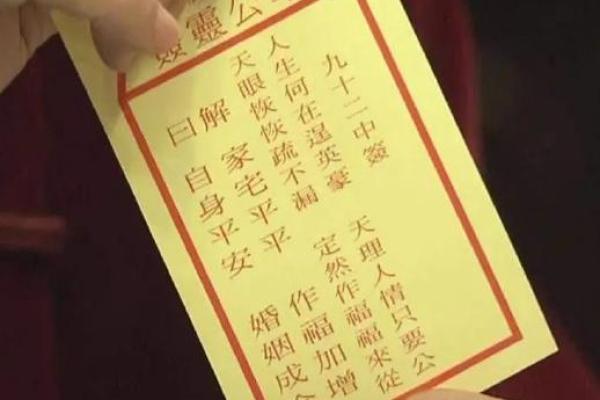 公靈簽
九十二中簽
人生何在逞英豪 天理人情只要公
天眼恢恢疏不漏 定然作福福來從
解 家宅平平 作福加增
曰 自身平安 婚姻成